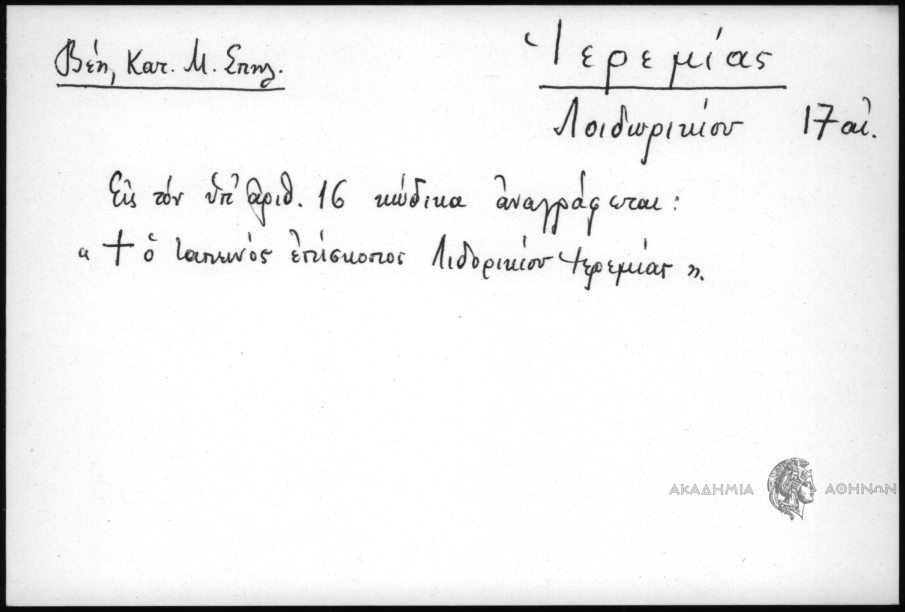 Βέη, Κατ. Μ. Σπηλ.
Ἱερεμίας
Λοιδωρικίου 17 αἰ.
Εἰς τόν ὑπ' ἀριθ. 16 κώδικα ἀναγράφεται:
« + ὁ ταπεινός ἐπίσκοπος Λιδορικίου Ἱερεμίας ».
ΑΚΑΔΗΜΙΑ ΑΘΗΝΩΝ